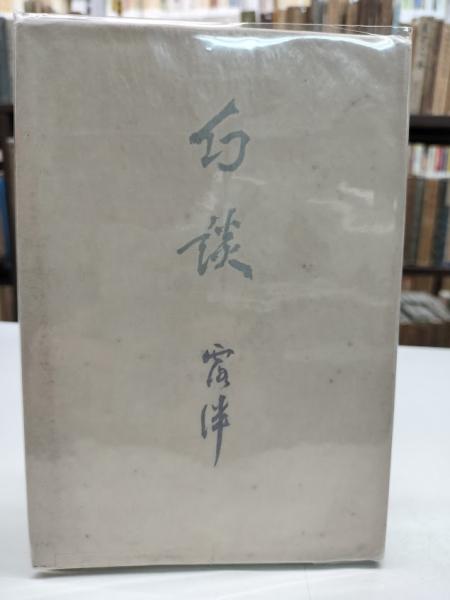 幻談
露伴